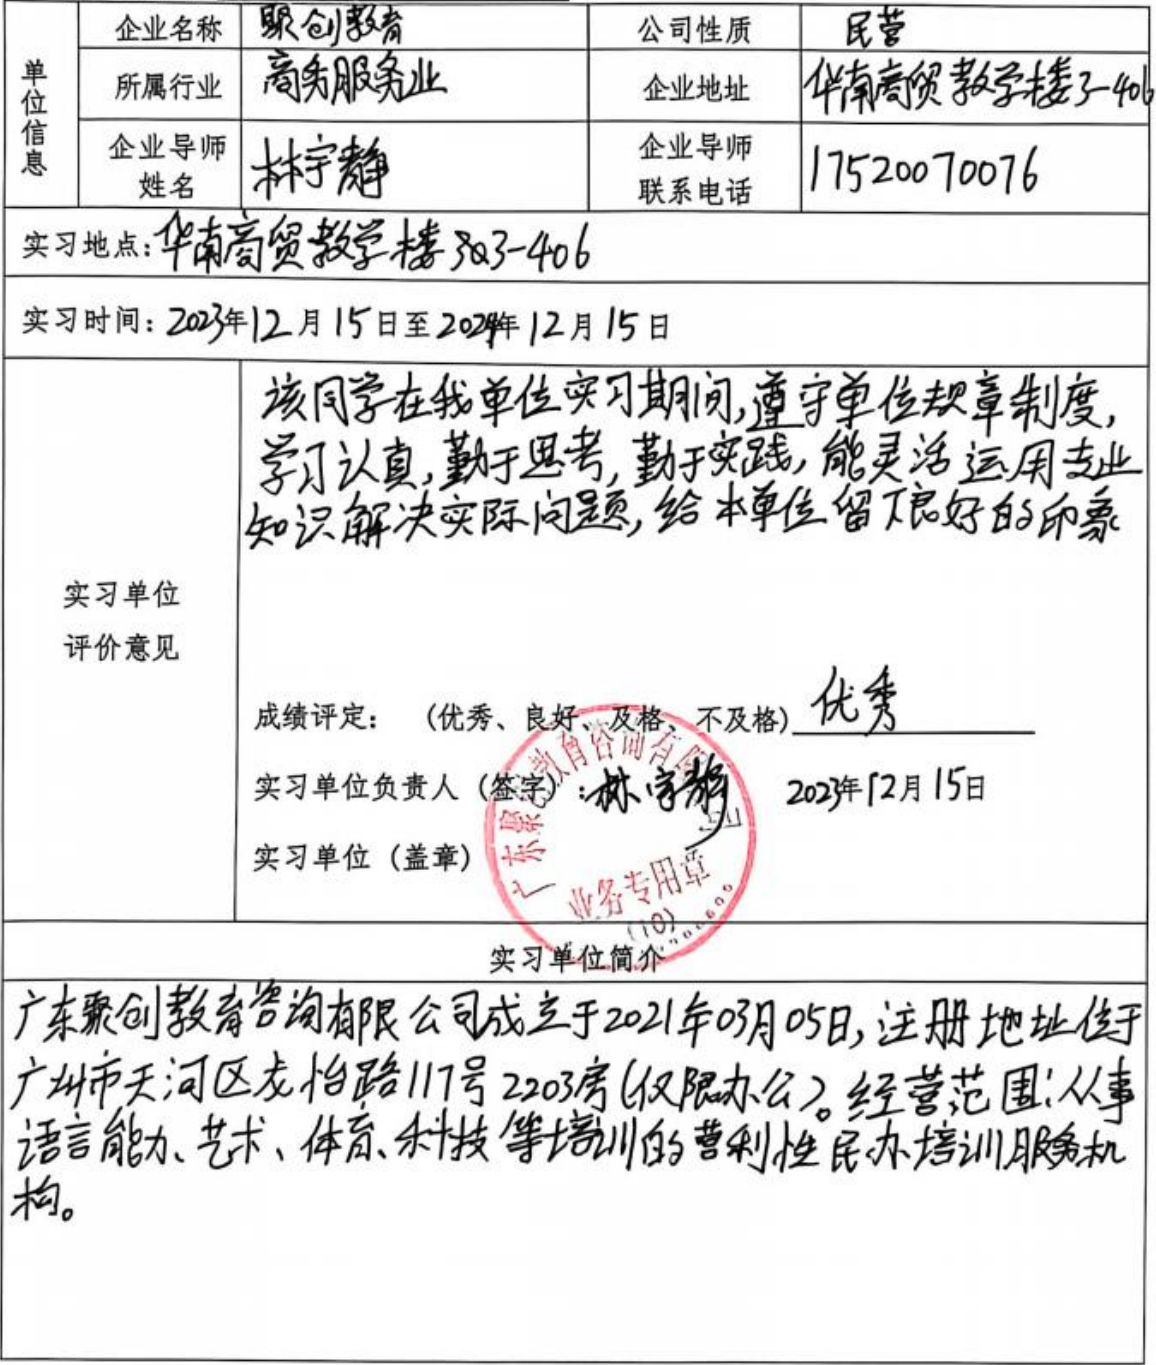 企业名称 聚创教育 公司性质 民营
单位信息
所属行业 商务服务业 企业地址 华南商贸教学楼3-406
企业导师姓名 林宇静 企业导师联系电话 17520070076
实习地点:华南商贸教学楼3-406
实习时间:2023年12月15日至2024年12月15日
该同学在我单位实习期间,遵守单位规章制度,
学习认真,勤于思考,勤于实践,能灵活运用专业
知识解决实际问题,给本单位留下良好的印象
实习单位
评价意见
成绩评定: (优秀、良好、及格、不及格) 优秀
实习单位负责人(签字):林宇静 2023年12月15日
实习单位(盖章)
广东聚创教育咨询有限公司
业务专用章
(10)
实习单位简介
广东聚创教育咨询有限公司成立于2021年03月05日,注册地址位于
广州市天河区龙怡路117号2203房(仅限办公)。经营范围:从事
语言能力、艺术、体育、科技等培训的营利性民办培训服务机
构。